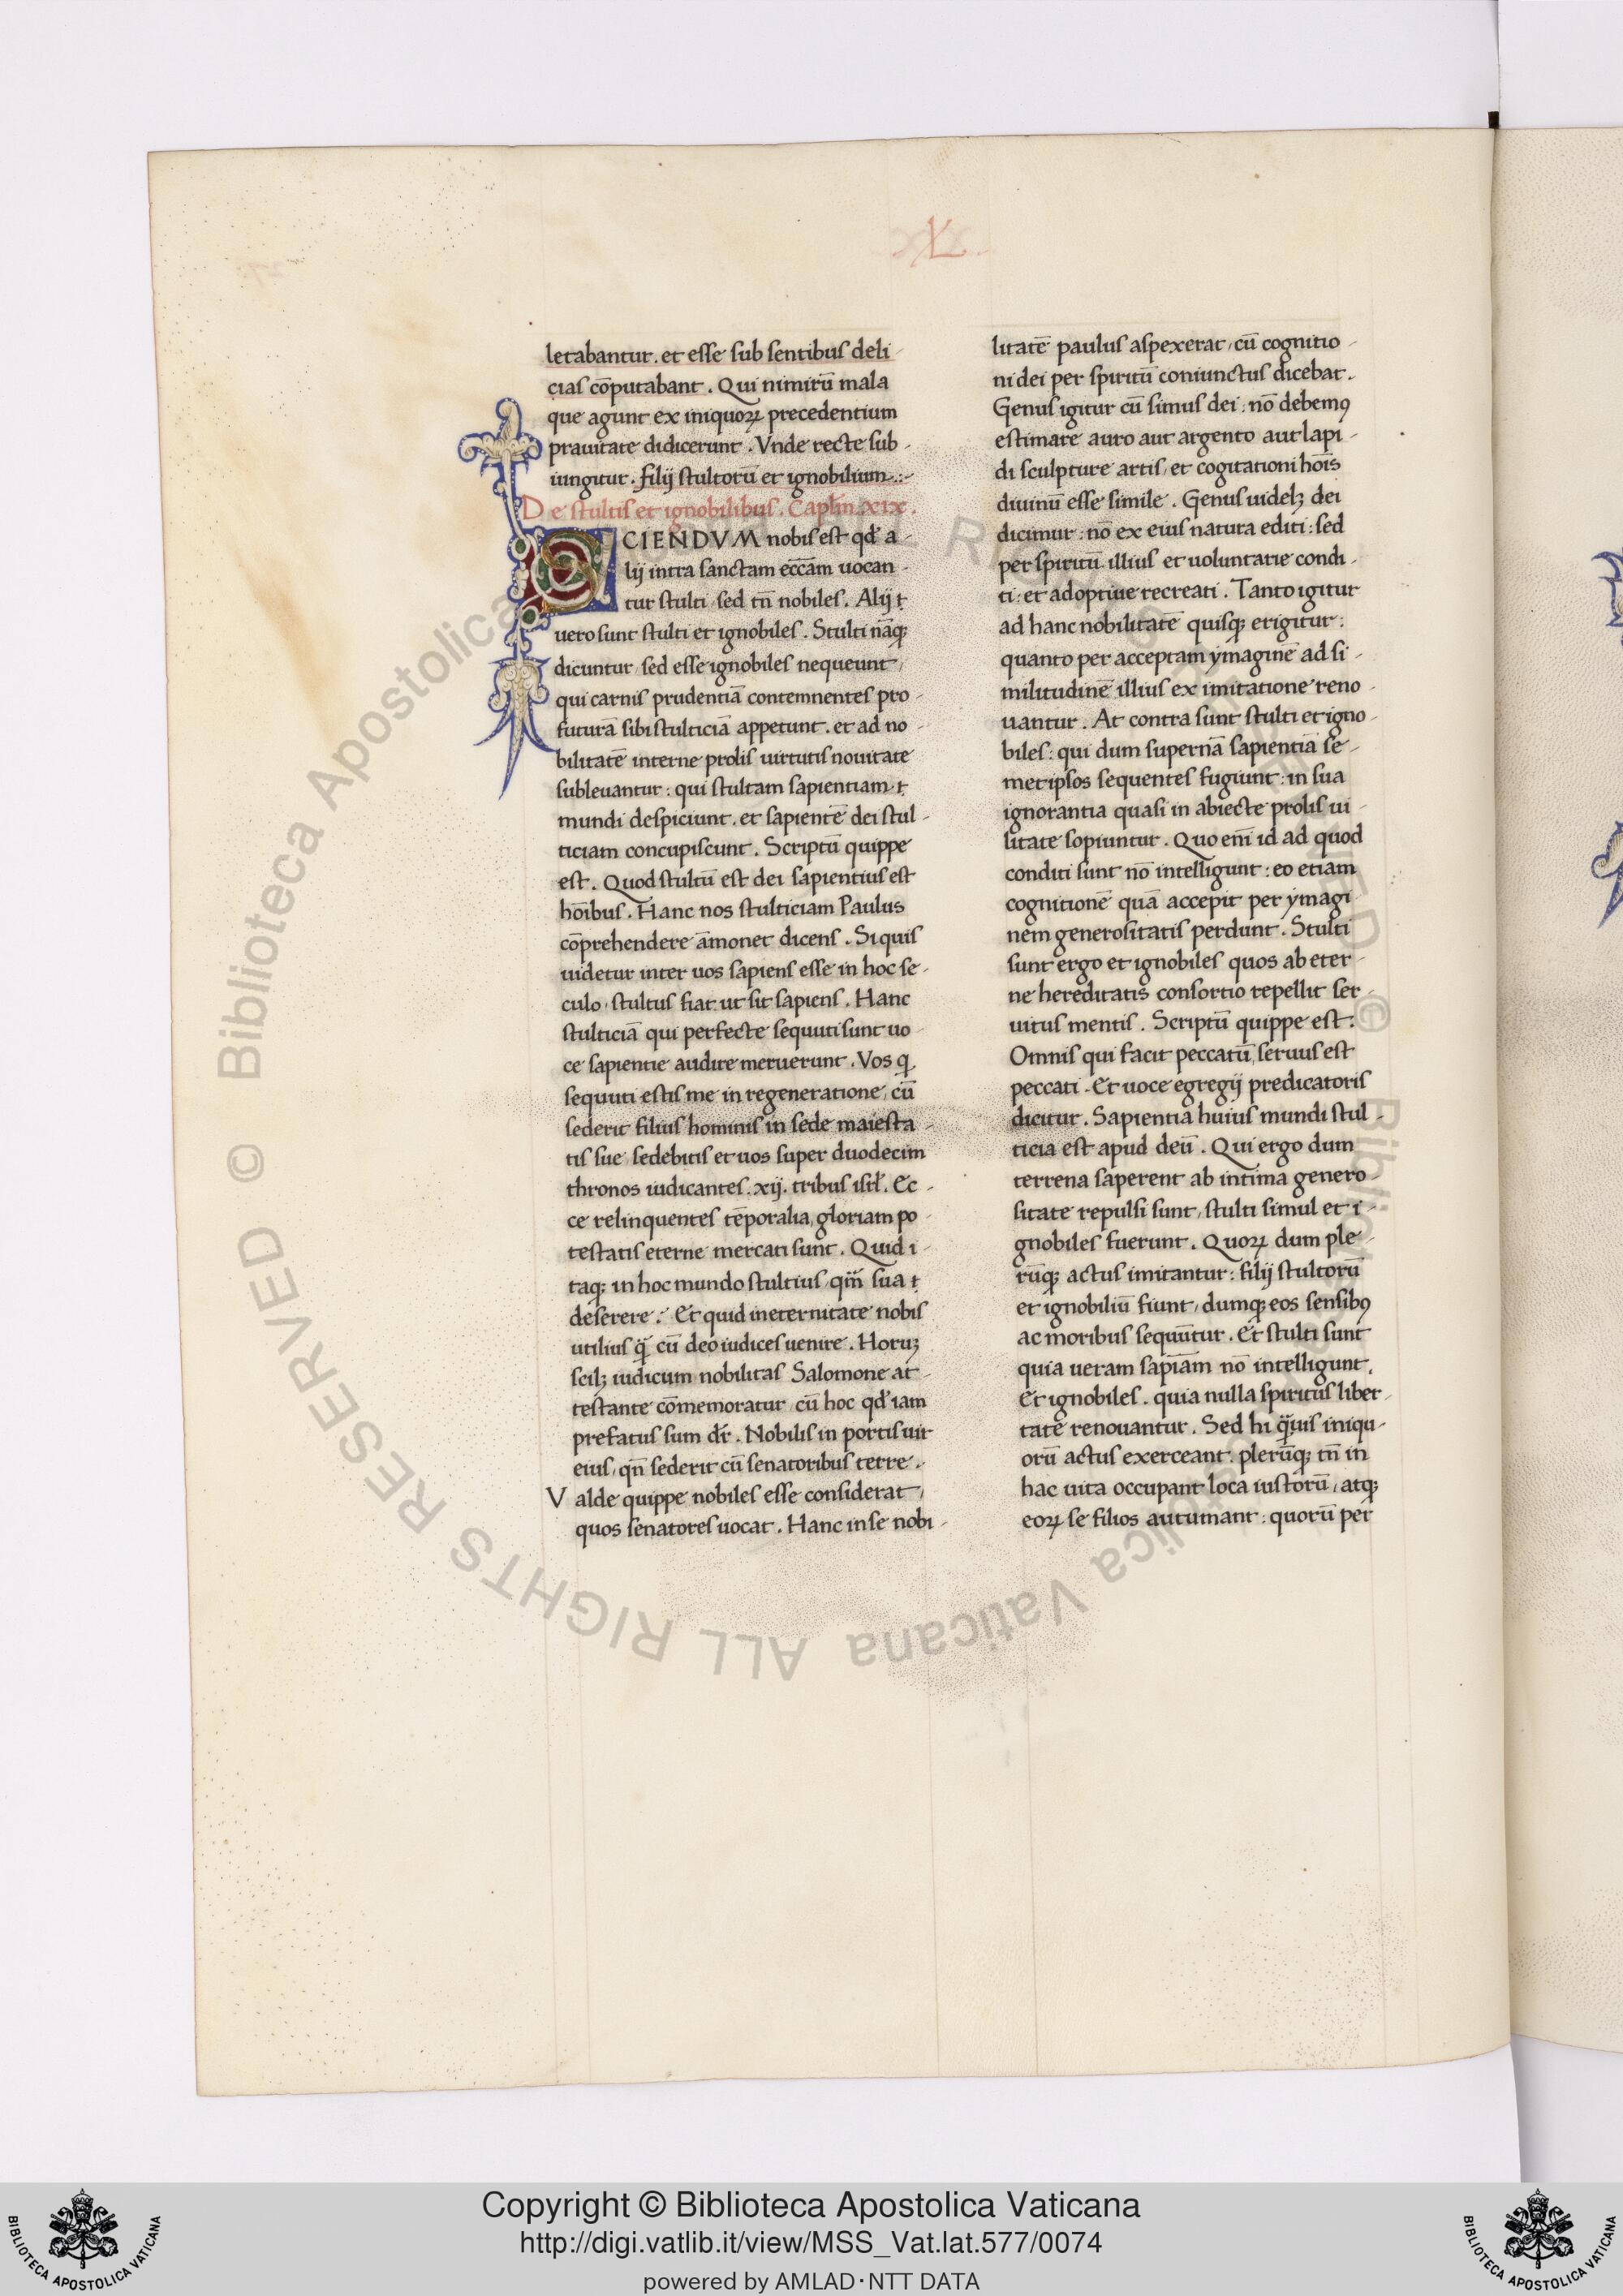 XL
letabantur. et esse sub sentibus deli-
cias cōputabant. Qui nimirū mala
que agunt ex iniquoꝝ precedentium
prauitate didicerunt. Vnde recte sub-
iungitur. filij stultorū et ignobilium.:-
De stultis et ignobilibus. Caplm. xix.
SCIENDVM nobis est qđ a-
lij intra sanctam ecc̄am uocan-
tur stulti, sed tn̄ nobiles. Alij
uero sunt stulti et ignobiles. Stulti nāqꝫ
dicuntur, sed esse ignobiles nequeunt,
qui carnis prudentiā contemnentes pro-
futurā sibi stulticiā appetunt. et ad no-
bilitatē interne prolis uirtutis nouitate
subleuantur: qui stultam sapientiam
mundi despiciunt. et sapientē dei stul-
ticiam concupiscunt. Scriptū quippe
est. Quod stultū est dei sapientius est
hoībus. Hanc nos stulticiam Paulus
cōprehendere āmonet dicens. Si quis
uidetur inter uos sapiens esse in hoc se-
culo, stultus fiat ut sit sapiens. Hanc
stulticiā qui perfecte sequuti sunt uo-
ce sapientie audire meruerunt. Vos q̄
sequuti estis me in regeneratione, cū
sederit filius hominis in sede maiesta-
tis sue sedebitis et uos super duodecim
thronos iudicantes .xij. tribus isrł. Ec-
ce relinquentes tēporalia, gloriam po-
testatis eterne mercati sunt. Quid i-
taqꝫ in hoc mundo stultius, qm̄ sua
deserere. Et quid in eternitate nobis
utilius q̄ cū deo iudices uenire. Horuꝫ
scilꝫ iudicum nobilitas Salomone at-
testante cōmemoratur, cū hoc qđ iam
prefatus sum dr̄. Nobilis in portis uir
eius, qn̄ sederit cū senatoribus terre.
Valde quippe nobiles esse considerat,
quos senatores uocat. Hanc in se nobi-
litatē paulus aspexerat, cū cognitio-
ni dei per spiritū coniunctus dicebat.
Genus igitur cū simus dei: nō debemꝰ
estimare auro aut argento aut lapi-
di sculpture artis, et cogitationi hoīs
diuinū esse simile. Genus uidelꝫ dei
dicimur: nō ex eius natura editi: sed
per spiritū illius et uoluntarie condi-
ti: et adoptiue recreati. Tanto igitur
ad hanc nobilitatē quisqꝫ erigitur:
quanto per acceptam ymaginē ad si-
militudinē illius ex imitatione reno-
uantur. At contra sunt stulti et igno-
biles: qui dum supernā sapientiā se-
metipsos sequentes fugiunt: in sua
ignorantia quasi in abiecte prolis ui-
litate sopiuntur. Quo enī id ad quod
conditi sunt nō intelligunt: eo etiam
cognitionē quā accepit per ymagi
nem generositatis perdunt. Stulti
sunt ergo et ignobiles quos ab eter-
ne hereditatis consortio repellit ser-
uitus mentis. Scriptū quippe est:
Omnis qui facit peccatū, seruus est
peccati. Et uoce egregij predicatoris
dicitur. Sapientia huius mundi stul-
ticia est apud deū. Qui ergo dum
terrena saperent ab intima genero-
sitate repulsi sunt, stulti simul et i-
gnobiles fuerunt. Quoꝝ dum ple-
rūqꝫ actus imitantur: filij stultorū
et ignobiliū fiunt, dumqꝫ eos sensibꝰ
ac moribus sequūtur. Et stulti sunt
quia ueram sapīam nō intelligunt.
Et ignobiles. quia nulla spiritus liber-
tate renouantur. Sed hi q̄uis iniqu-
orū actus exerceant: plerūqꝫ tn̄ in
hac uita occupant loca iustorū, atqꝫ
eoꝝ se filios autumant: quorū per
© Biblioteca Apostolica Vaticana ALL RIGHTS RESERVED
Copyright © Biblioteca Apostolica Vaticana
http://digi.vatlib.it/view/MSS_Vat.lat.577/0074
powered by AMLAD·NTT DATA
BIBLIOTECA APOSTOLICA VATICANA
BIBLIOTECA APOSTOLICA VATICANA